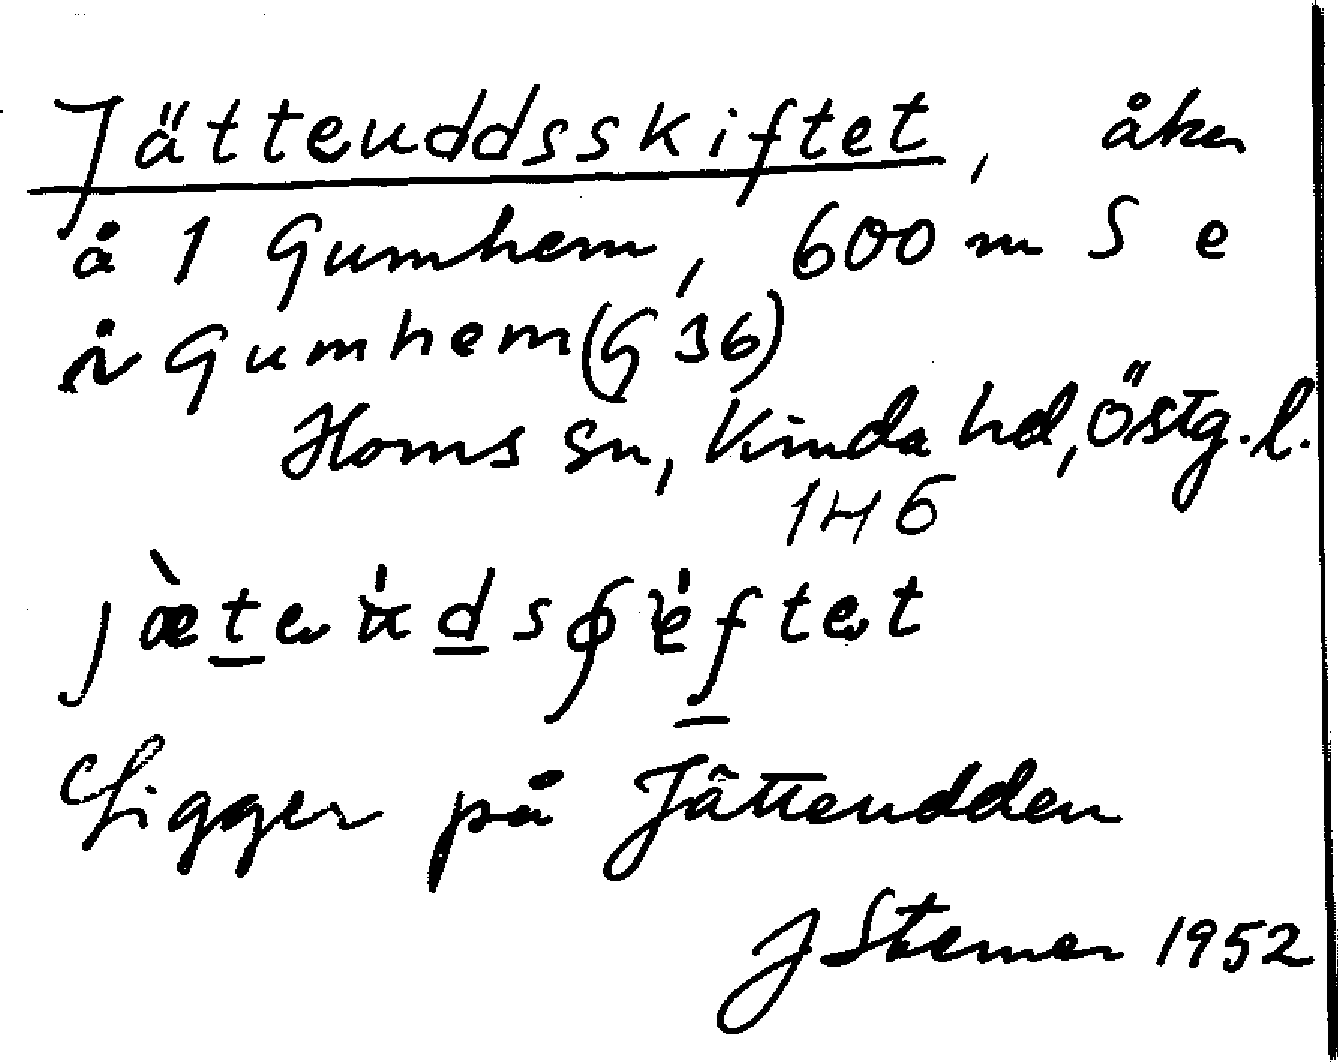 Jätteuddsskiftet, åker
å 1 Gumhem, 600 m S e
år Gumhem (G 36)
Horns sn, Kinda hd, Östg.l.
1H6
Ligger på Jätteudden
J Sterner 1952